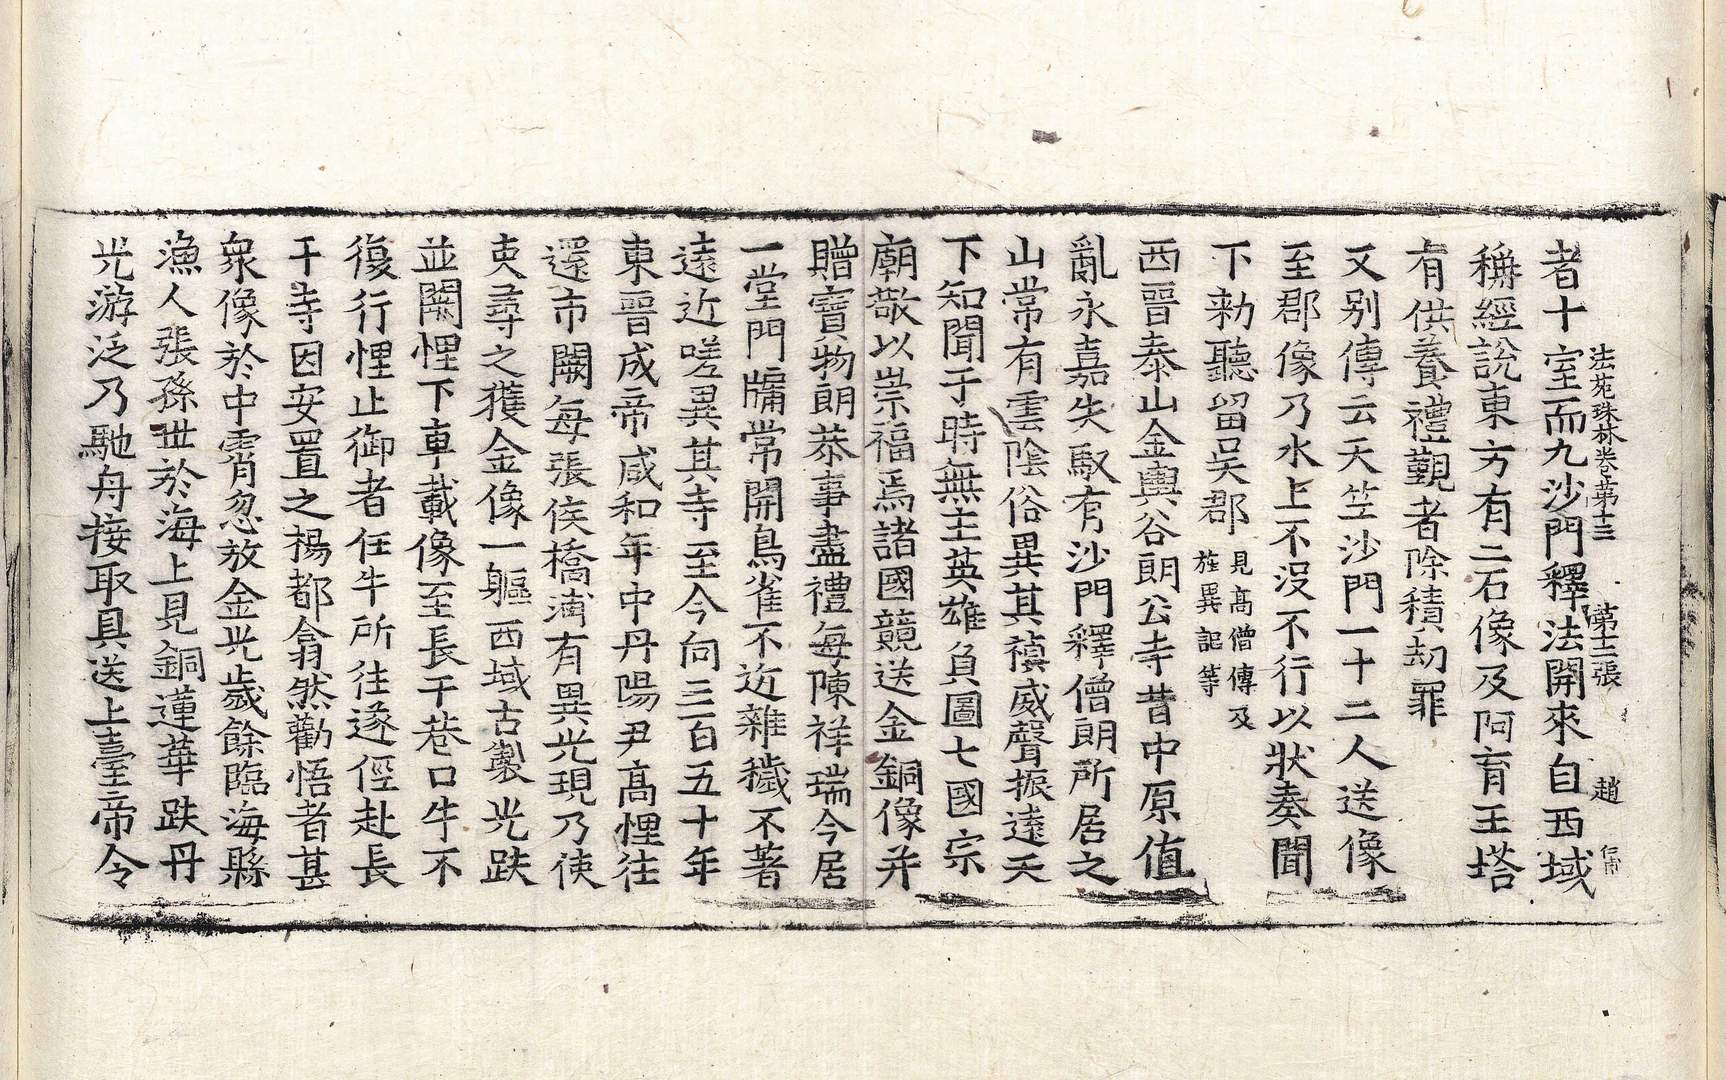 法苑珠林卷第十三 第十二張 趙
者十室而九沙門釋法開來自西域
稱經說東方有二石像及阿育王塔
有供養禮觀者除積劫罪
又別傳云天竺沙門一十二人送像
至郡像乃水上不沒不行以狀奏聞
下勑聽留吳郡見高僧傳及旌異記等
西晉泰山金輿谷朗公寺昔中原值
亂永嘉失馭有沙門釋僧朗所居之
山常有雲陰俗異其禎威聲振遠天
下知聞于時無主英雄負圖七國宗
廟敬以崇福焉諸國競送金銅像并
贈寶物朗恭事盡禮每陳祥瑞今居
一堂門牖常開鳥雀不近雜穢不著
遠近嗟異其寺至今向三百五十年
東晉成帝咸和年中丹陽尹高悝往
還市闕每張侯橋浦有異光現乃使
吏尋之獲金像一軀西域古製光趺
並闕悝下車載像至長干巷口牛不
復行悝止御者任牛所往遂徑赴長
干寺因安置之楊都翕然勸悟者甚
眾像於中霄忽放金光歲餘臨海縣
漁人張孫世於海上見銅蓮華趺丹
光游泛乃馳舟接取具送上臺帝令